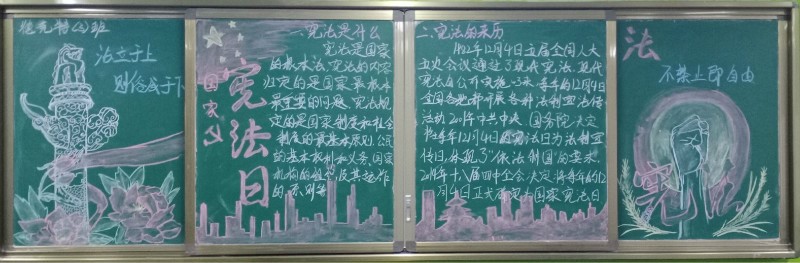 法立于上
则俗成于下
国家
宪法日
一、宪法是什么
宪法是国家
的根本法,宪法的内容
归定的是国家最根本
最重要的问题,宪法规
定的是国家制度和社会
制度的最基本原则,公民
的基本权利和义务,国家
机构的组
及其运作
的
二、宪法的来历
1982年12月4日五届全国人大
五次会议通过了现代宪法,现代
宪法自公开实施
每年的12月4日
全国各地都开展各种法制宣传
活动2001年中共中央、国务院决定
将每年12月4日的宪法日为法制宣
传日,体现了依法制国的要求,
2014年十八届四中全会决定,将每年的12
月4日正式确定为国家宪法日
法
不禁止即自由
宪法